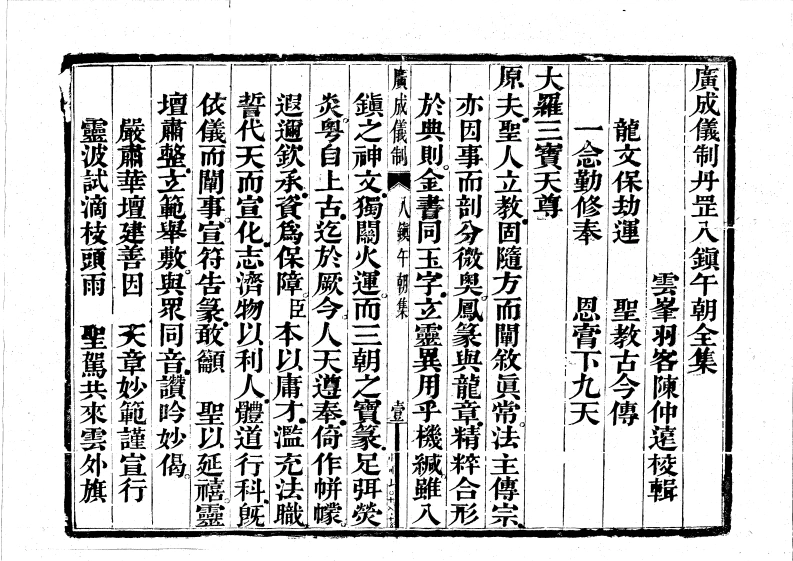 廣成儀制丹罡八鎮午朝全集
雲峯羽客陳仲遠校輯
龍文保劫運 聖教古今傳
一念勤修奉 恩霄下九天
大羅三寶天尊
原夫聖人立教固隨方而闡敘眞常法主傳宗
亦因事而剖分微奧鳳篆與龍章精粹合形
於典則金書同玉字立靈異用乎機緘雖八
廣成儀制 八鎮午朝集 壹
鎮之神文獨關火運而三朝之寶篆足弭熒
炎粵自上古迄於厥今人天遵奉倚作帡幪
遐邇欽承資爲保障臣 本以庸才濫充法職
誓代天而宣化志濟物以利人體道行科旣
依儀而闡事宣符告篆敢籲 聖以延禧靈
壇肅整立範舉敷與眾同音讚吟妙偈
嚴肅華壇建善因 天章妙範謹宣行
靈波試滴枝頭雨 聖駕共來雲外旗